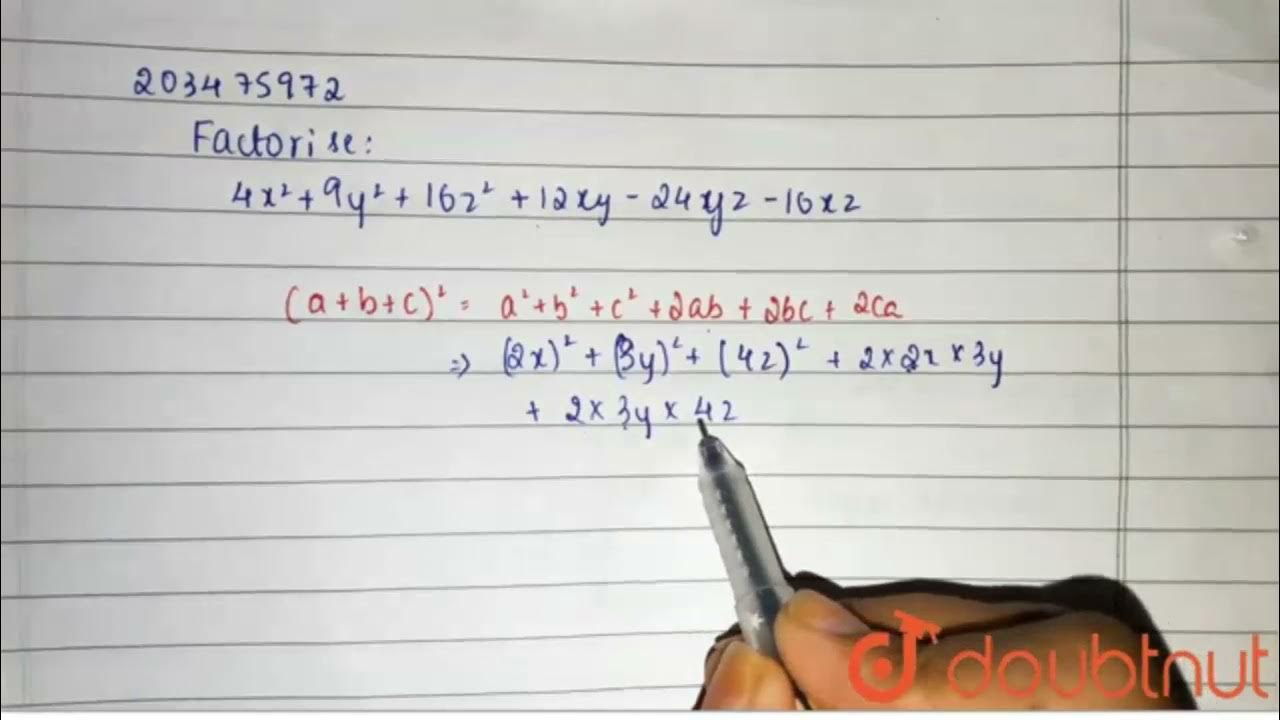 203475972
Factorise:
4x² + 9y² + 16z² + 12xy - 24yz - 16xz
(a+b+c)² = a² + b² + c² + 2ab + 2bc + 2ca
⇒ (2x)² + (3y)² + (4z)² + 2×2x×3y
+ 2×3y×4z
doubtnut